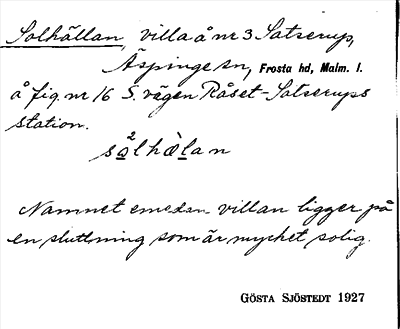 Solhällan, villa å nr 3 Satserup,
Äspinge sn, Frosta hd, Malm. l.
å fig. nr 16 S. vägen Råset-Satserups
station.
2
solhälan
Namnet emedan villan ligger på
en sluttning som är mycket solig.
GÖSTA SJÖSTEDT 1927